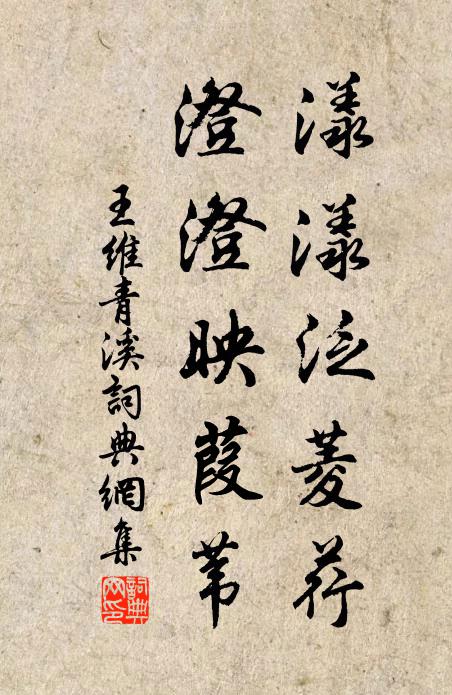 漾漾泛菱荇
澄澄映葭苇
王维青溪詞典網集
詞典网印